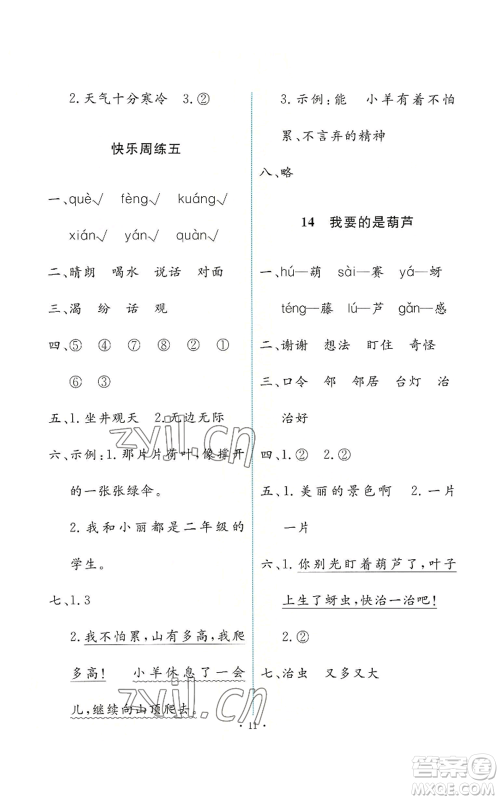 2.天气十分寒冷 3.②
快乐周练五
一、què√ fèng√ kuáng√
xián√ yán√ quàn√
二、晴朗 喝水 说话 对面
三、渴 纷 话 观
四、⑤ ④ ② ② ① ①
⑥ ③
五、1.坐井观天 2.无边无际
六、示例:1.那片片荷叶,像撑开
的一张张绿伞。
2.我和小丽都是二年级的
学生。
七、1.3
2.我不怕累,山有多高,我爬
多高! 小羊休息了一会
儿,继续向山顶爬去。
3.示例:能 小羊有着不怕
累、不言弃的精神
八、略
14 我要的是葫芦
一、hú—葫 sài—赛 yá—蚜
téng—藤 lú—芦 gǎn—感
二、谢谢 想法 盯住 奇怪
三、口令 邻 邻居 台灯 治
治好
四、1.② 2.②
五、1.美丽的景色啊 2.一片
一片
六、1.你别光盯着葫芦了,叶子
上生了蚜虫,快治一治吧!
2.②
七、治虫 又多又大
11
zyjl.cn
zyjl.cn
答案圈
MXQE.COM